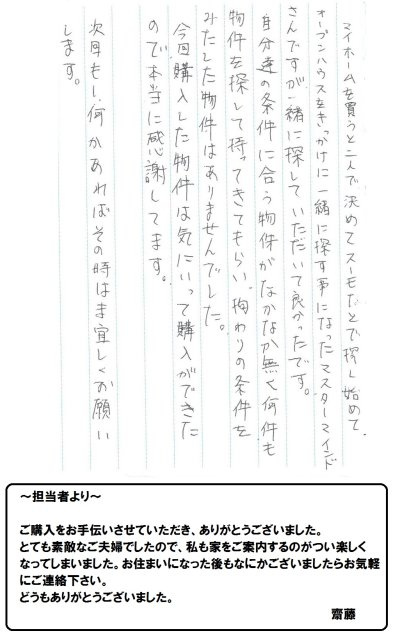 マイホームを買うと二人で決めてスーモなどで探し始めて、
オープンハウスをきっかけに一緒に探す事になったマスターマインド
さんですが一緒に探していただいて良かったです。
自分達の条件に合う物件がなかなか無く何件も
物件を探して持ってきてもらい、拘わりの条件を
みたした物件はありませんでした。
今回購入した物件は気にいって購入ができた
ので本当に感謝してます。
次回もし何かあればその時はま宜しくお願い
します。
～担当者より～
ご購入をお手伝いさせていただき、ありがとうございました。
とても素敵なご夫婦でしたので、私も家をご案内するのがつい楽しく
なってしまいました。お住まいになった後もなにかございましたらお気軽
にご連絡下さい。
どうもありがとうございました。
齋藤